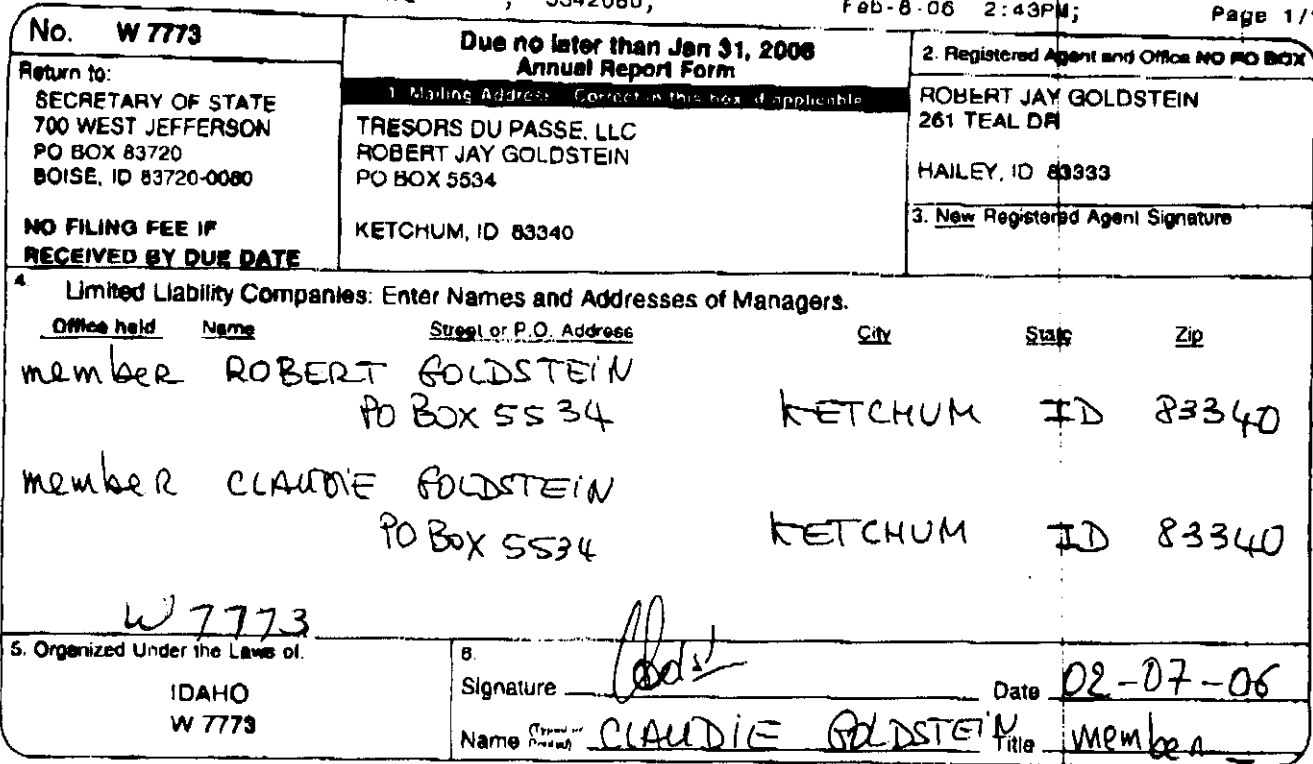 5342080, Feb-8-06 2:43PM; Page 1/
No. W 7773
Return to:
SECRETARY OF STATE
700 WEST JEFFERSON
PO BOX 83720
BOISE, ID 83720-0080
NO FILING FEE IF
RECEIVED BY DUE DATE
Due no later than Jan 31, 2006
Annual Report Form
1. Mailing Address Correct in this box if applicable
TRESORS DU PASSE, LLC
ROBERT JAY GOLDSTEIN
PO BOX 5534
KETCHUM, ID 83340
2. Registered Agent and Office NO PO BOX
ROBERT JAY GOLDSTEIN
261 TEAL DR
HAILEY, ID 83333
3. New Registered Agent Signature
4. Limited Liability Companies: Enter Names and Addresses of Managers.
Office held Name Street or P.O. Address City State Zip
member ROBERT GOLDSTEIN
PO BOX 5534 KETCHUM ID 83340
member CLAUDIE GOLDSTEIN
PO BOX 5534 KETCHUM ID 83340
W 7773
5. Organized Under the Laws of.
IDAHO
W 7773
6.
Signature Date 02-07-06
Name (Typed or Printed) CLAUDIE GOLDSTEIN Title member